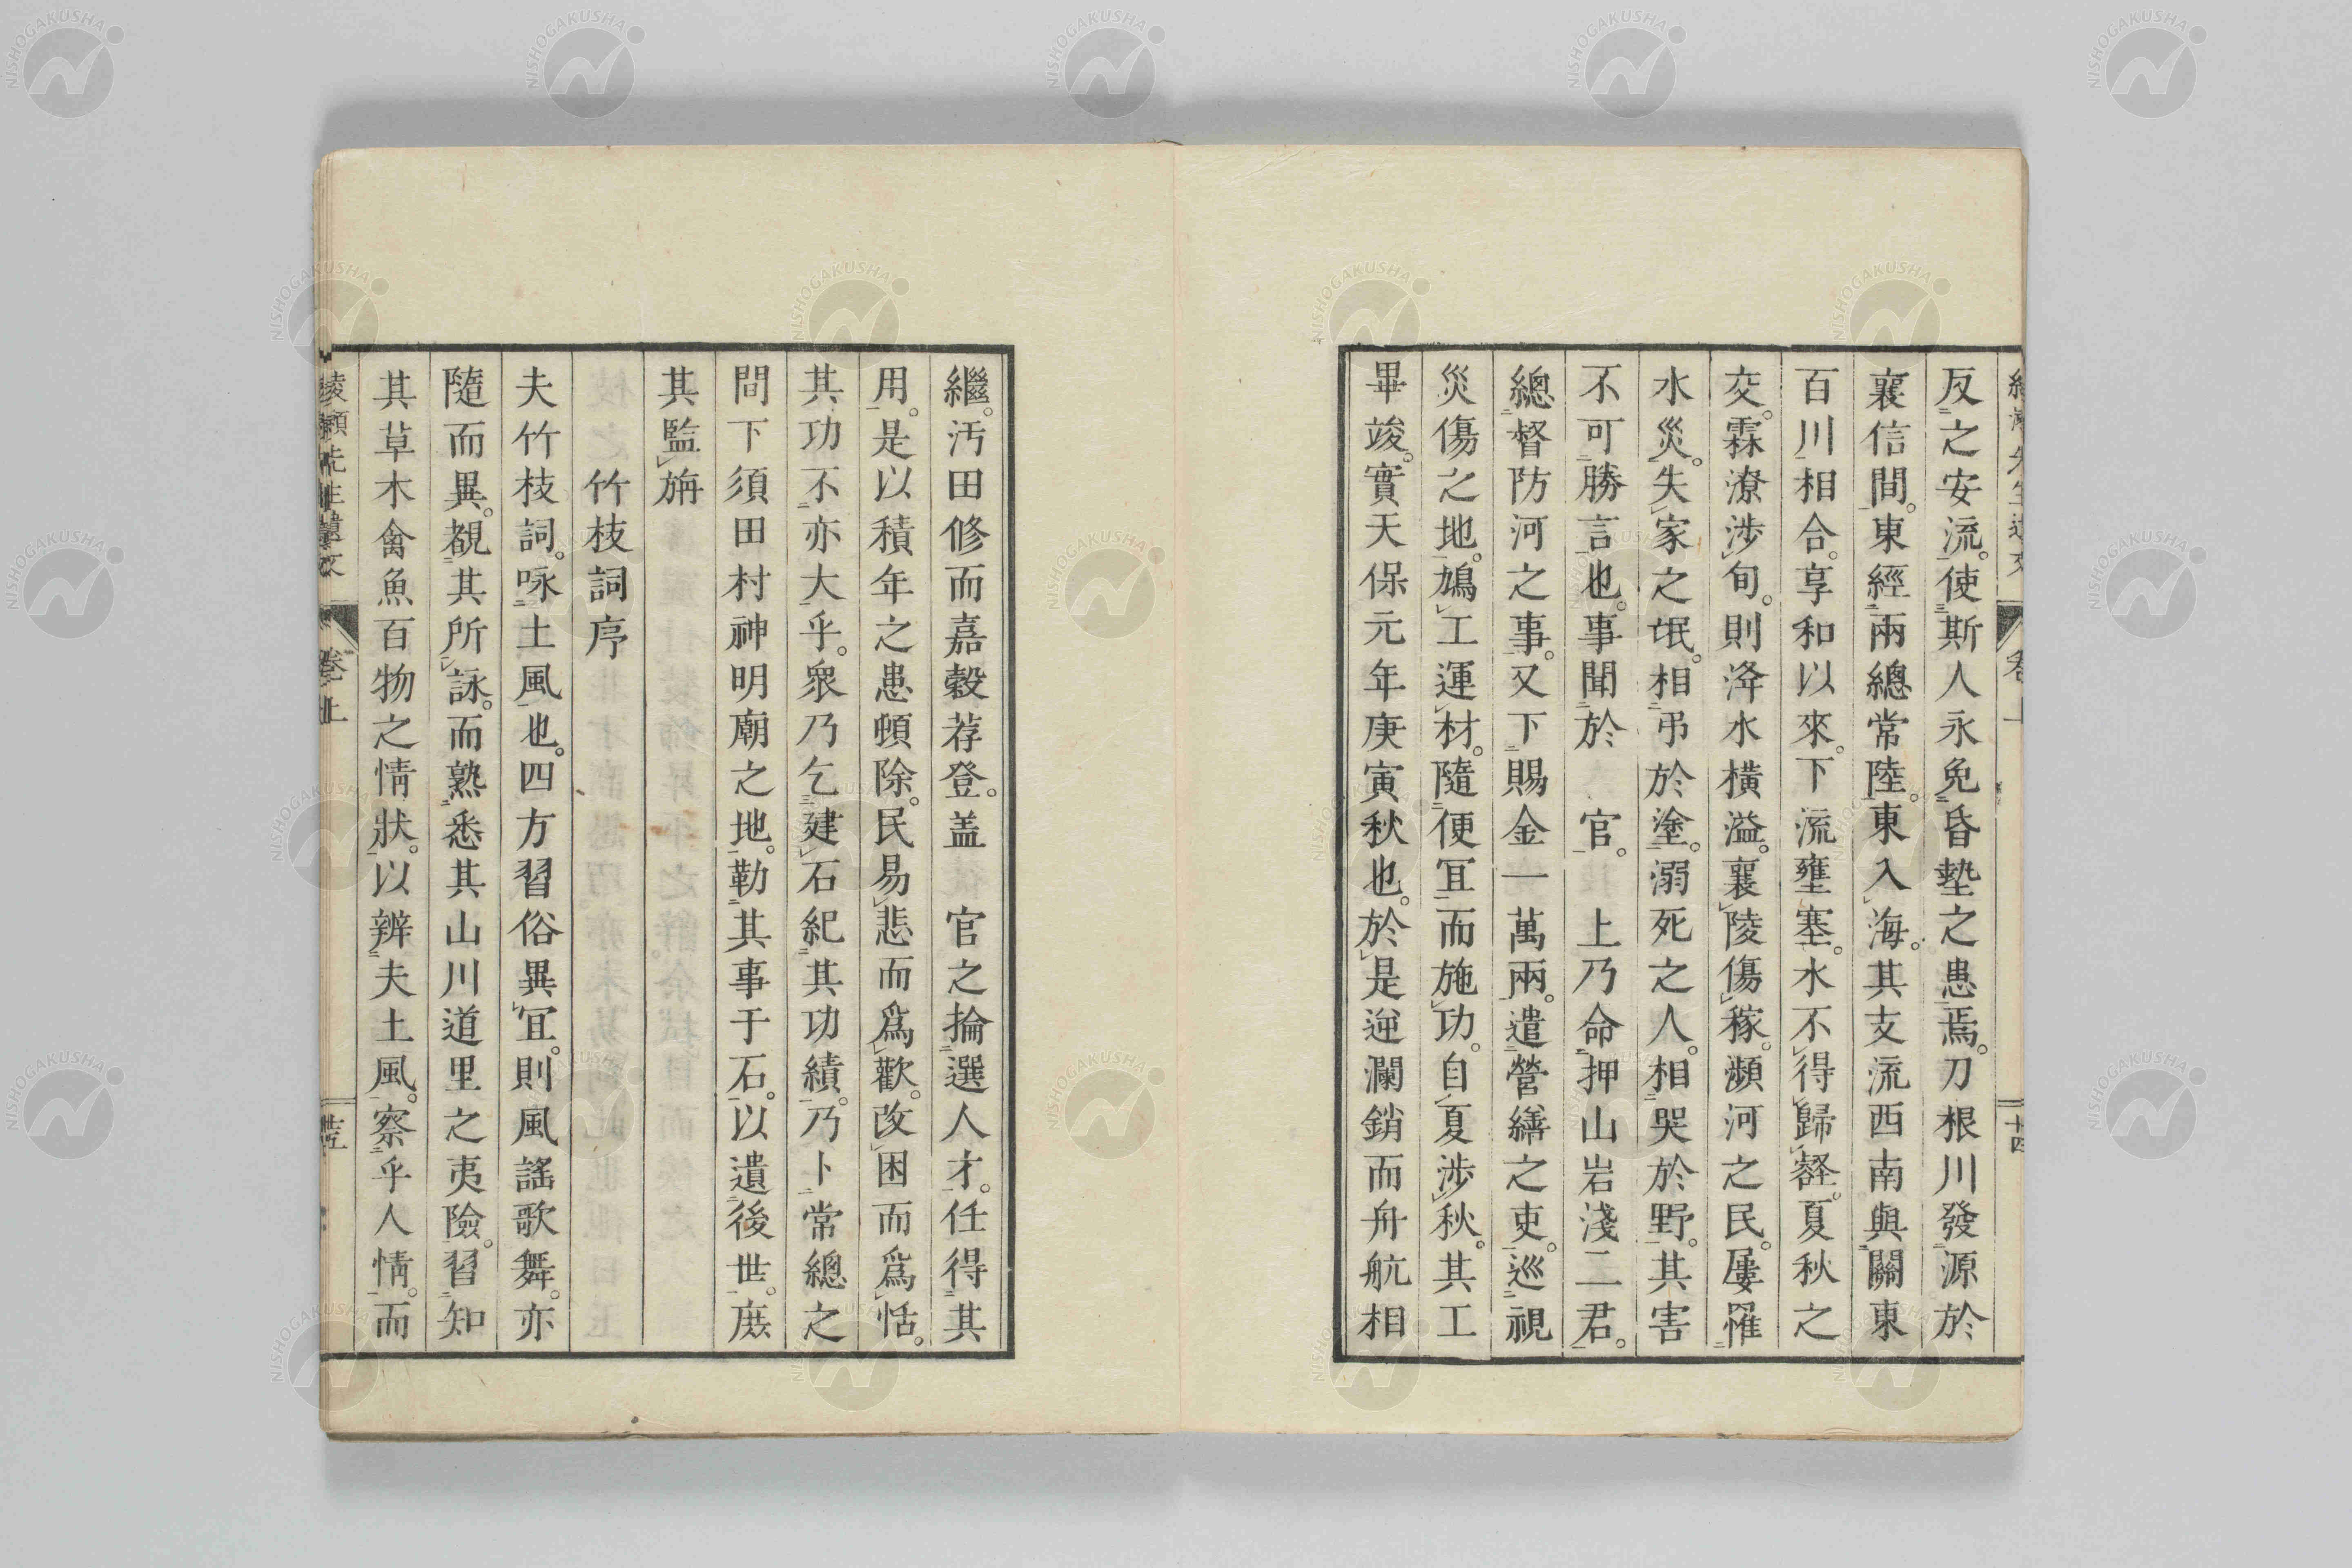 反之安流。使斯人永免昏墊之患焉。刀根川發源於
襄信間。東經兩總常陸。東入海。其支流西南與關東
百川相合。享和以來。下流壅塞。水不得歸壑。夏秋之
交。霖潦涉旬。則洚水橫溢。襄陵傷稼。瀕河之民。屢罹
水災。失家之氓。相弔於塗。溺死之人。相哭於野。其害
不可勝言也。事聞於　官。　上乃命押山岩淺二君。
總督防河之事。又下賜金一萬兩。遣營繕之吏。巡視
災傷之地。鳩工運材。隨便冝而施功。自夏涉秋。其工
畢竣。實天保元年庚寅秋也。於是逆瀾銷而舟航相
繼。汚田修而嘉穀荐登。盖　官之掄選人才。任得其
用。是以積年之患頓除。民易悲而爲歡。改困而爲恬。
其功不亦大乎。衆乃乞建石紀其功績。乃卜常總之
間下須田村神明廟之地。勒其事于石。以遺後世。庶
其監旃
竹枝詞序
夫竹枝詞。咏土風也。四方習俗異冝。則風謠歌舞。亦
隨而異。覩其所詠。而熟悉其山川道里之夷險。習知
其草木禽魚百物之情狀。以辨夫土風。察乎人情。而
先生遺文
卷上
NISHOGAKUSHA